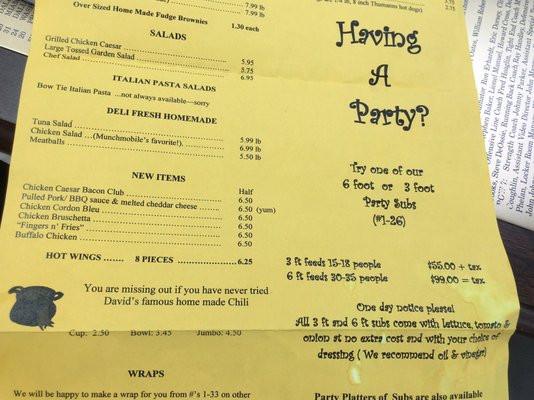 7.99 lb
7.99 lb
Over Sized Home Made Fudge Brownies
1.30 each
SALADS
Grilled Chicken Caesar 5.95
Large Tossed Garden Salad 5.75
Chef Salad 6.95
ITALIAN PASTA SALADS
Bow Tie Italian Pasta ...not always available—sorry
DELI FRESH HOMEMADE
Tuna Salad 5.99 lb
Chicken Salad ...(Munchmobile's favorite!). 6.99 lb
Meatballs 5.50 lb
NEW ITEMS
Half
Chicken Caesar Bacon Club 6.50
Pulled Pork/ BBQ sauce & melted cheddar cheese 6.50 (yum)
Chicken Cordon Bleu 6.50
Chicken Bruschetta 6.50
"Fingers n' Fries" 6.50
Buffalo Chicken 6.50
HOT WINGS 8 PIECES 6.25
You are missing out if you have never tried
David's famous home made Chili
Cup: 2.50 Bowl: 3.45 Jumbo: 4.50
WRAPS
We will be happy to make a wrap for you from #'s 1-33 on other
8 inch Thumanns hot dogs)
3.75
Having
A
Party?
Try one of our
6 foot or 3 foot
Party Subs
(#1-26)
3 ft feeds 15-18 people $55.00 + tax
6 ft feeds 30-35 people $99.00 = tax
One day notice please!
All 3 ft and 6 ft subs come with lettuce, tomato &
onion at no extra cost and with your choice of
dressing ( We recommend oil & vinegar)
Party Platters of Subs are also available